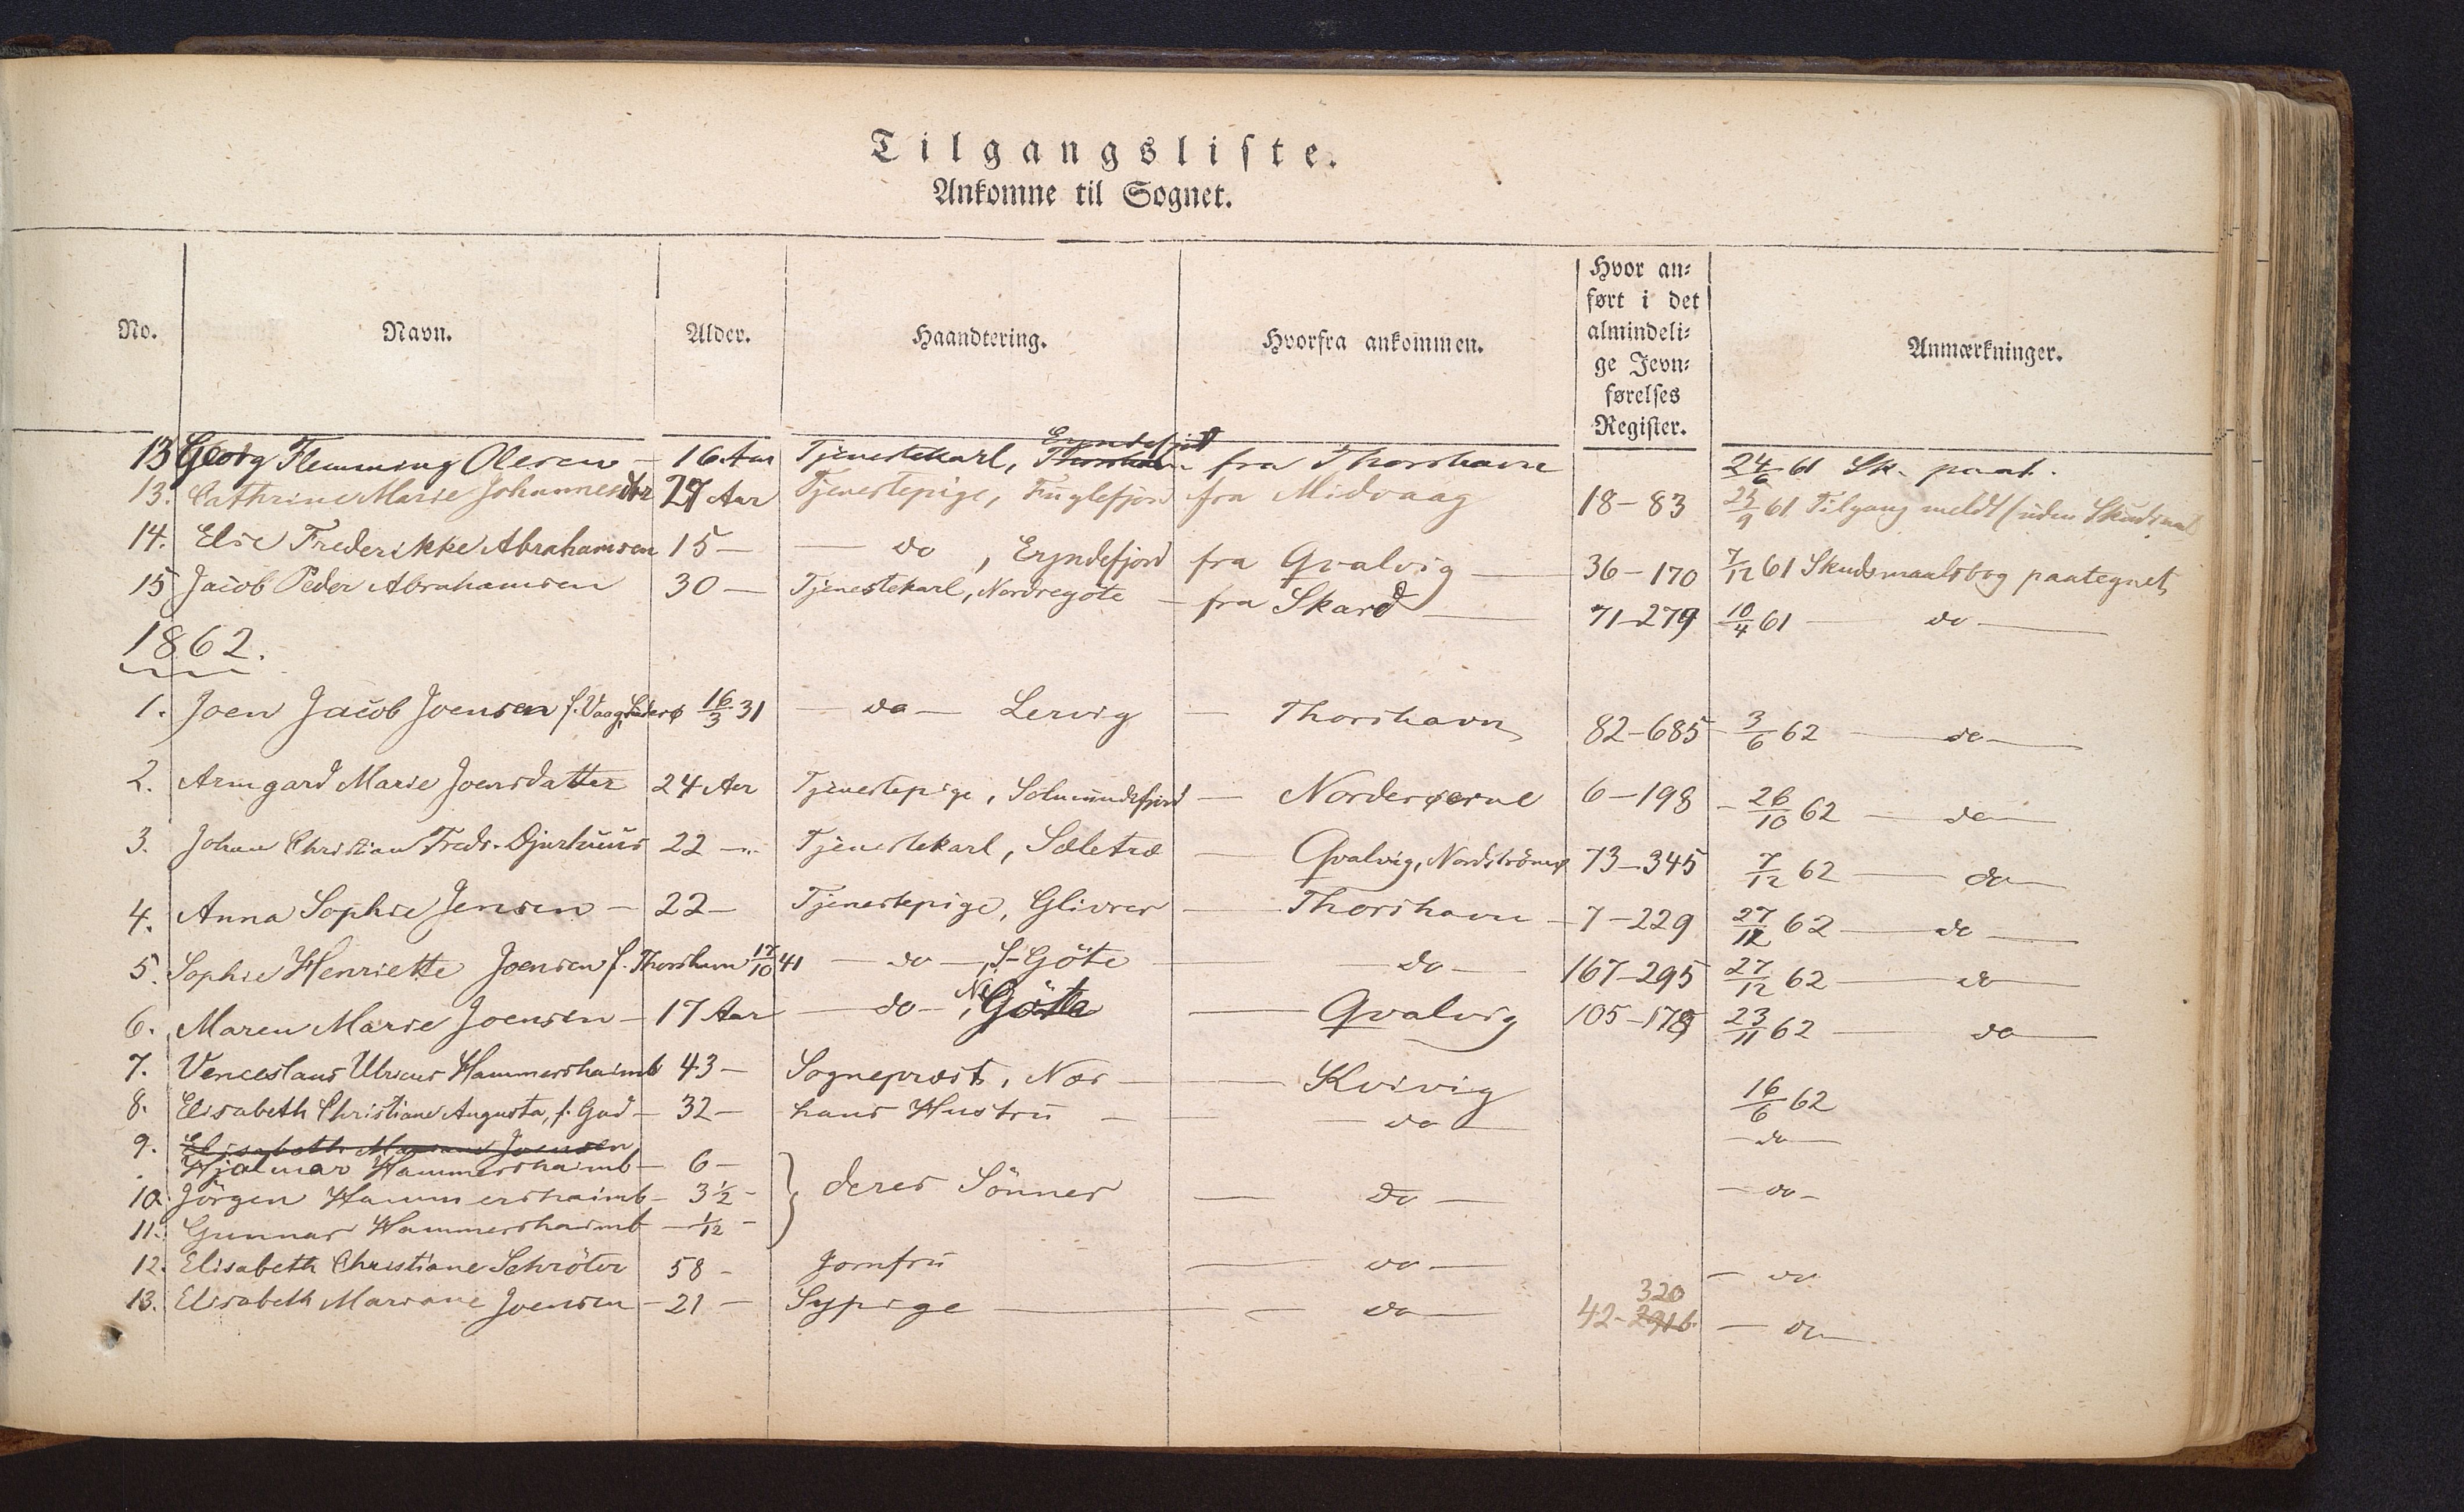 Tilgangsliste.
Ankomne til Sognet.
No. Navn. Alder. Haandtering. Hvorfra ankommen. Hvor anført i det almindelige Jevnførelses Register. Anmærkninger.
13 Georg Flemming Olesen — 16 Aar Tjenestekarl, Thorshavn Eyndefjord fra Thorshavn 24/6 61 Sk. paat.
13. Cathrine Marie Johannesdtr 27 Aar Tjenestepige, Fuglefjord fra Midvaag 18-83 25/9 61 Tilgang meldt (uden Skudsmaal
14. Else Frederikke Abrahamsen 15 — — do, Eyndefjord fra Qvalvig — 36-170 7/12 61 Skudsmaalsbog paategnet
15 Jacob Peder Abrahamsen 30 — Tjenestekarl, Nordregøte — fra Skard — 71-279 10/4 61 — do —
1862.
1. Joen Jacob Joensen f. Vaag, Suderø 16/3 31 — do — Lervig — Thorshavn 82-685 3/6 62 — do —
2. Armgard Marie Joensdatter 24 Aar Tjenestepige, Solmundefjord — Norderøerne 6-198 - 26/10 62 — do —
3. Johan Christian Fredr. Djurhuus 22 — Tjenestekarl, Sæletræ — Qvalvig, Nordstrømø 73-345 7/12 62 — do —
4. Anna Sophie Jensen — 22 — Tjenestepige, Glivrer — Thorshavn — 7-229 27/12 62 — do —
5. Sophie Henriette Joensen f. Thorshavn 17/10 41 — do —, S-Göte — do — 167-295 27/12 62 — do —
6. Maren Marie Joensen — 17 Aar — do —, N. Göte — Qvalvig 105-179 23/11 62 — do
7. Venceslaus Ulricus Hammershaimb 43 — Sognepræst, Næs — Kvivig 16/6 62
8. Elisabeth Christiane Augusta, f. Gad — 32 — hans Hustru — — do — — do —
9. Elisabeth Mariane Joensen
Hjalmar Hammershaimb — 6 —
10. Jörgen Hammershaimb — 3 1/2 - } deres Sönner — do — — do —
11. Gunnar Hammershaimb — 1/12 -
12. Elisabeth Christiane Schröter 58 - Jomfru — do — — do
13. Elisabeth Mariane Joensen — 21 — Sypige — — do — 42-291b. 320 — do —